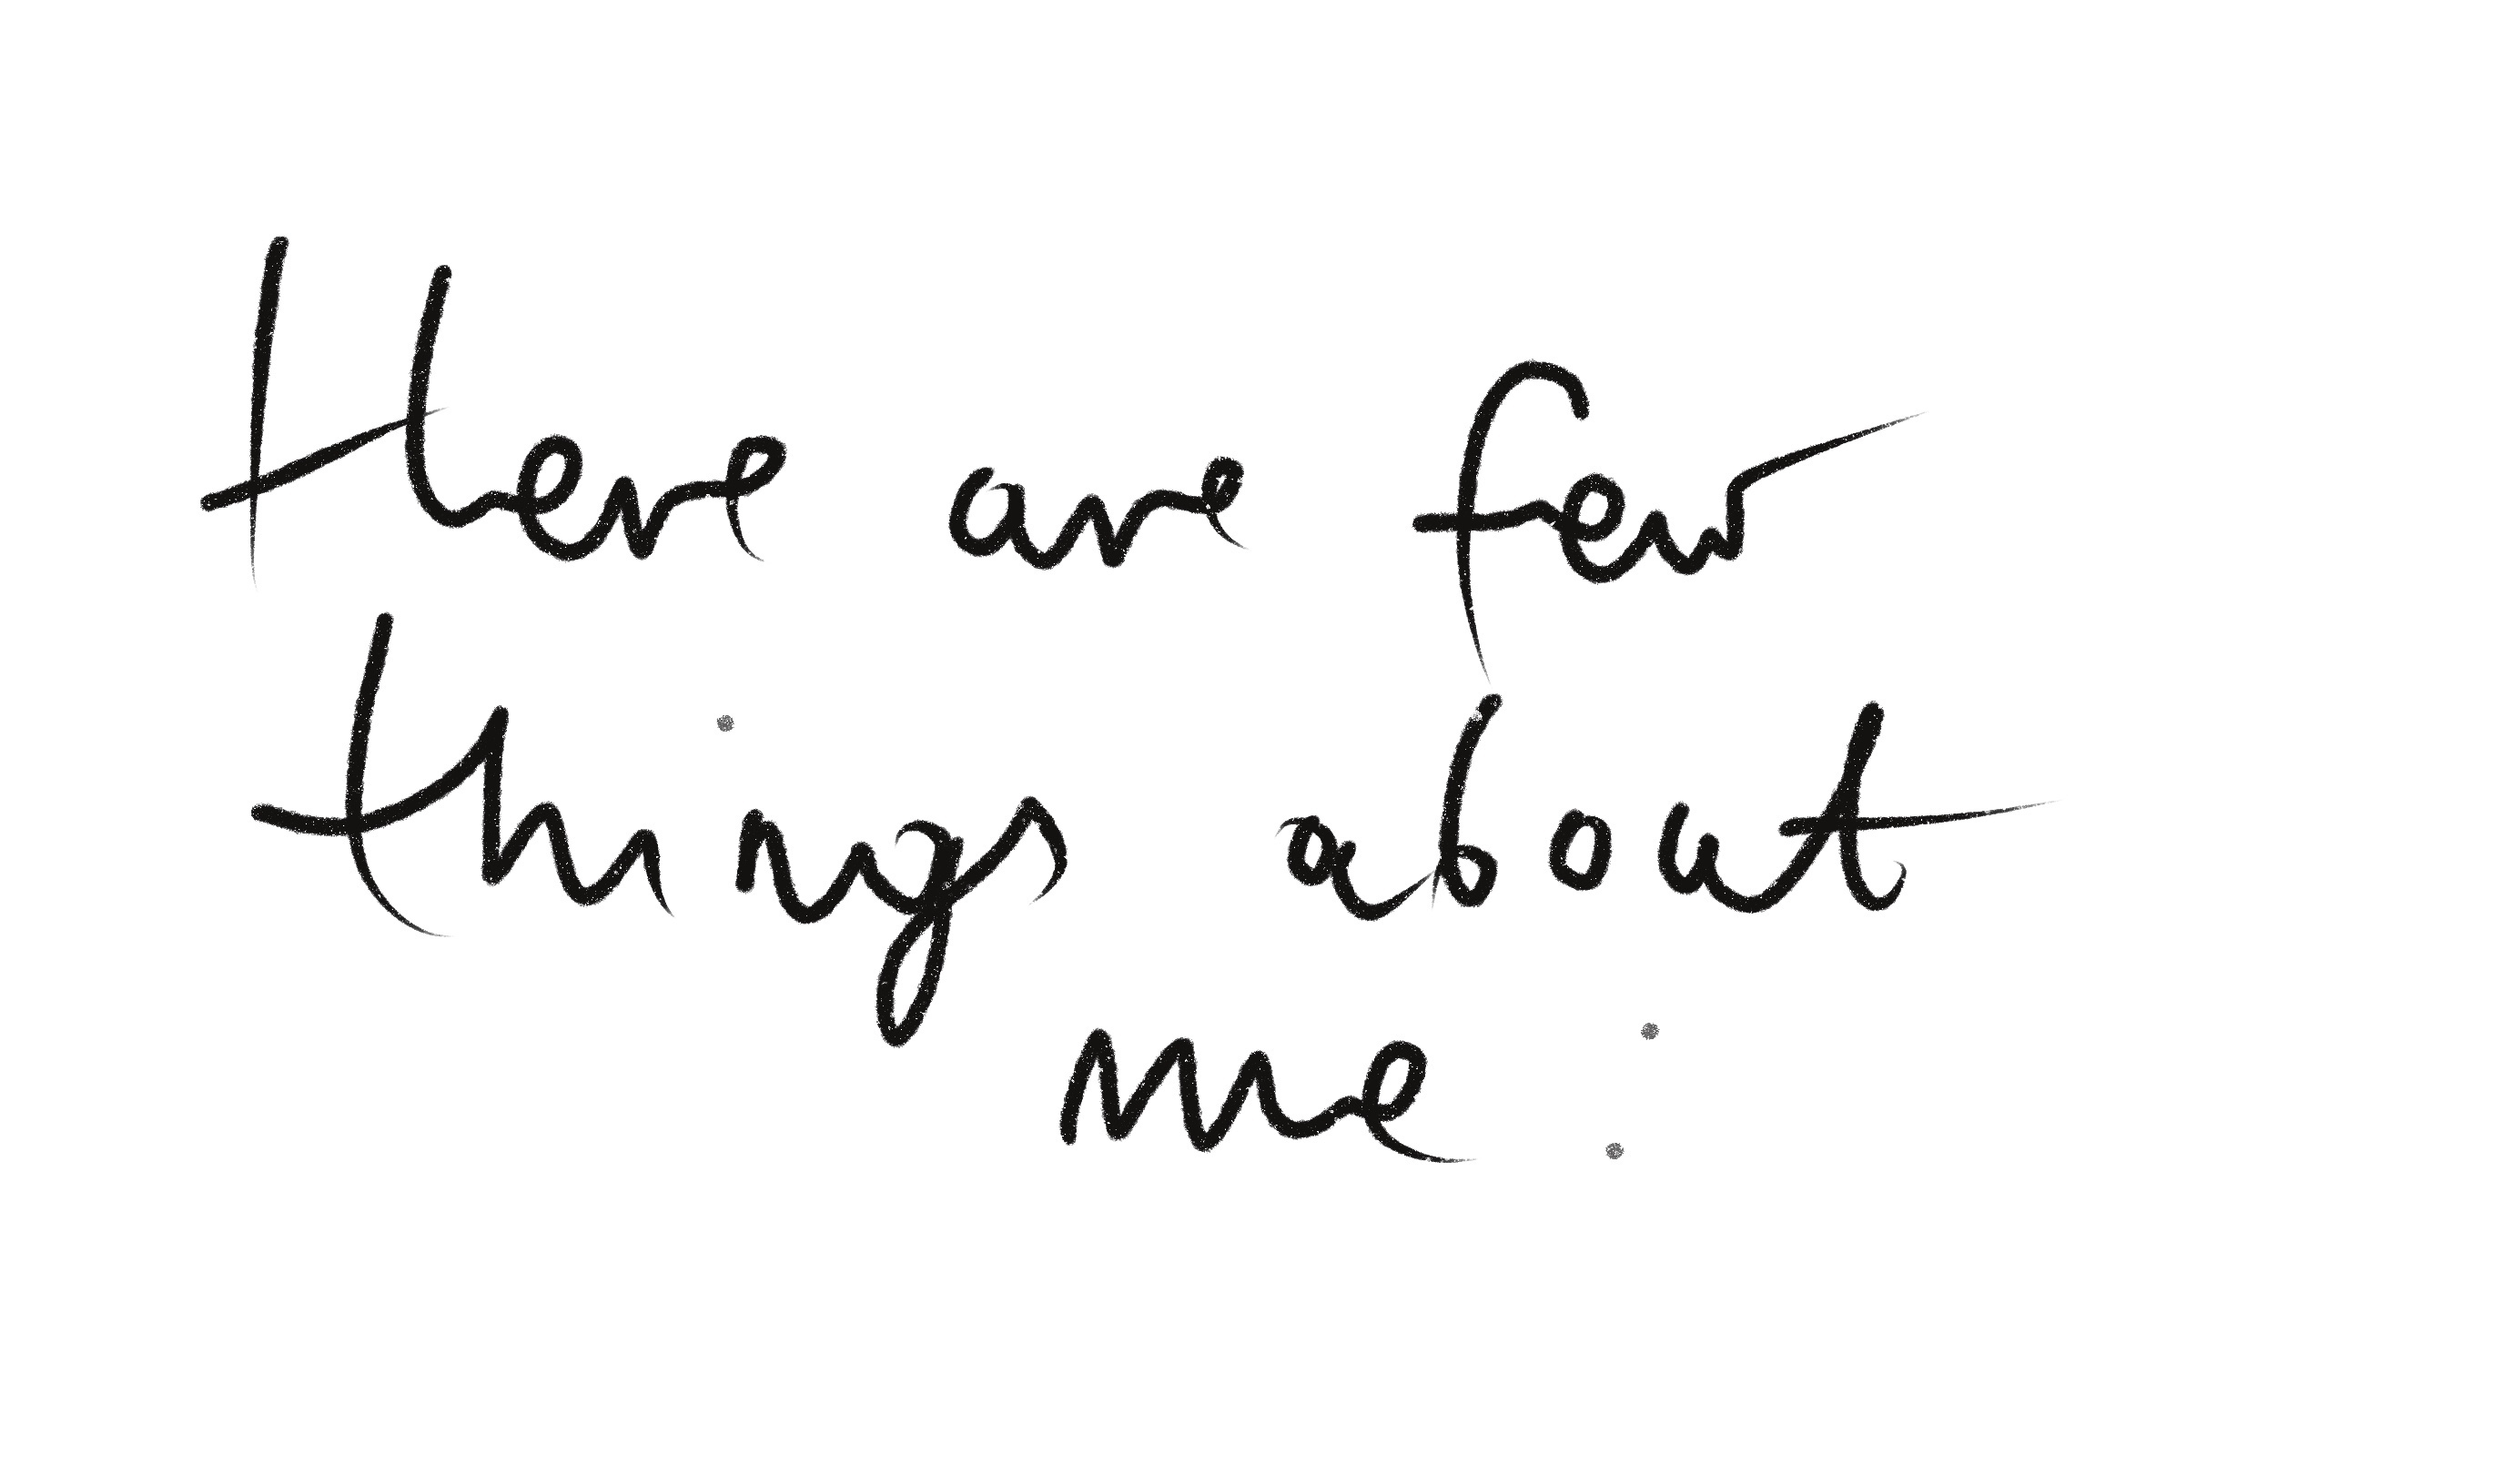 Here are few
things about
me :